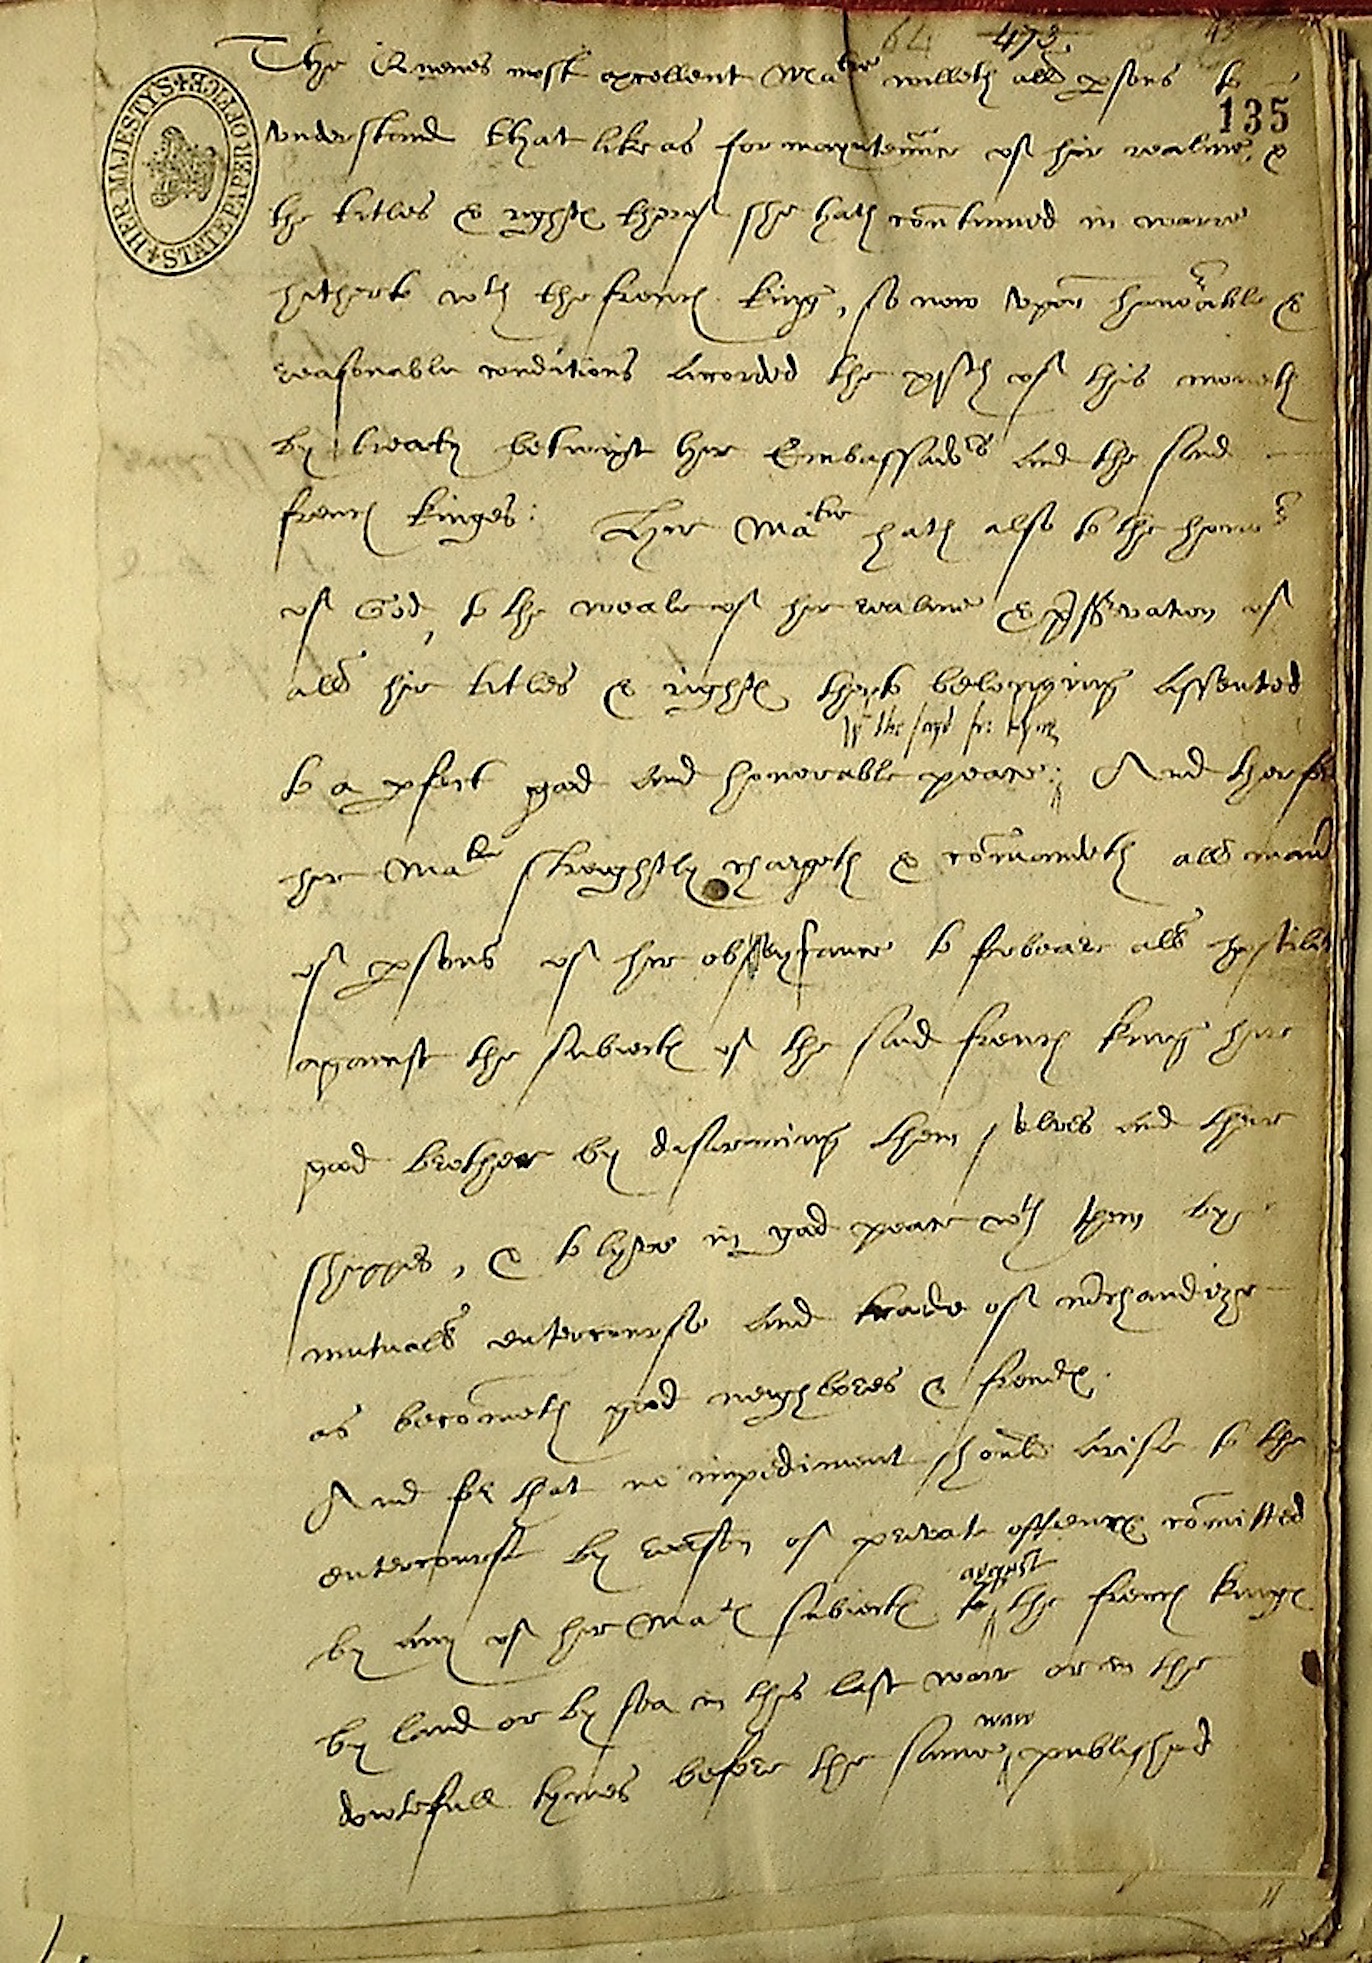 64 473
135
HER MAJESTY'S STATE PAPER OFFICE
The Quenes most excellent Matie willeth all psons to
vnderstand that like as for mayntennce of hir realme, &
the titles & rightes therof she hath contynued in warre
hitherto wth the french king, so now vpon honorable &
reasonable conditions accorded the xjth of this moneth
by treaty betwixt her Embassadors and the said
french kinges: Hyr Matie hath also to the honor
of God, to the weale of hir realme & pservation of
all hir titles & rightes therto belongging assented
wt the sayd fr: kyng
to a pfect good and honorable peace; And therfor
hir Matie streightly chargeth & comandeth all manr
of psons of hir obeysance to forbeare all hostili
against the subiectes of the said french king hir
good brother by disarming them selves and their
shippes, & to lyve in good peace wth them by
mutuall entercourse and trade of mrchandize
as becometh good neighbores & frendes.
And for that no impediment should arise to the
entercourse by reason of private offences comitted
by any of hir Mates subiectes to the french kinges
against
by land or by sea in this last warr or in the
dowtefull tymes before the same published
warr